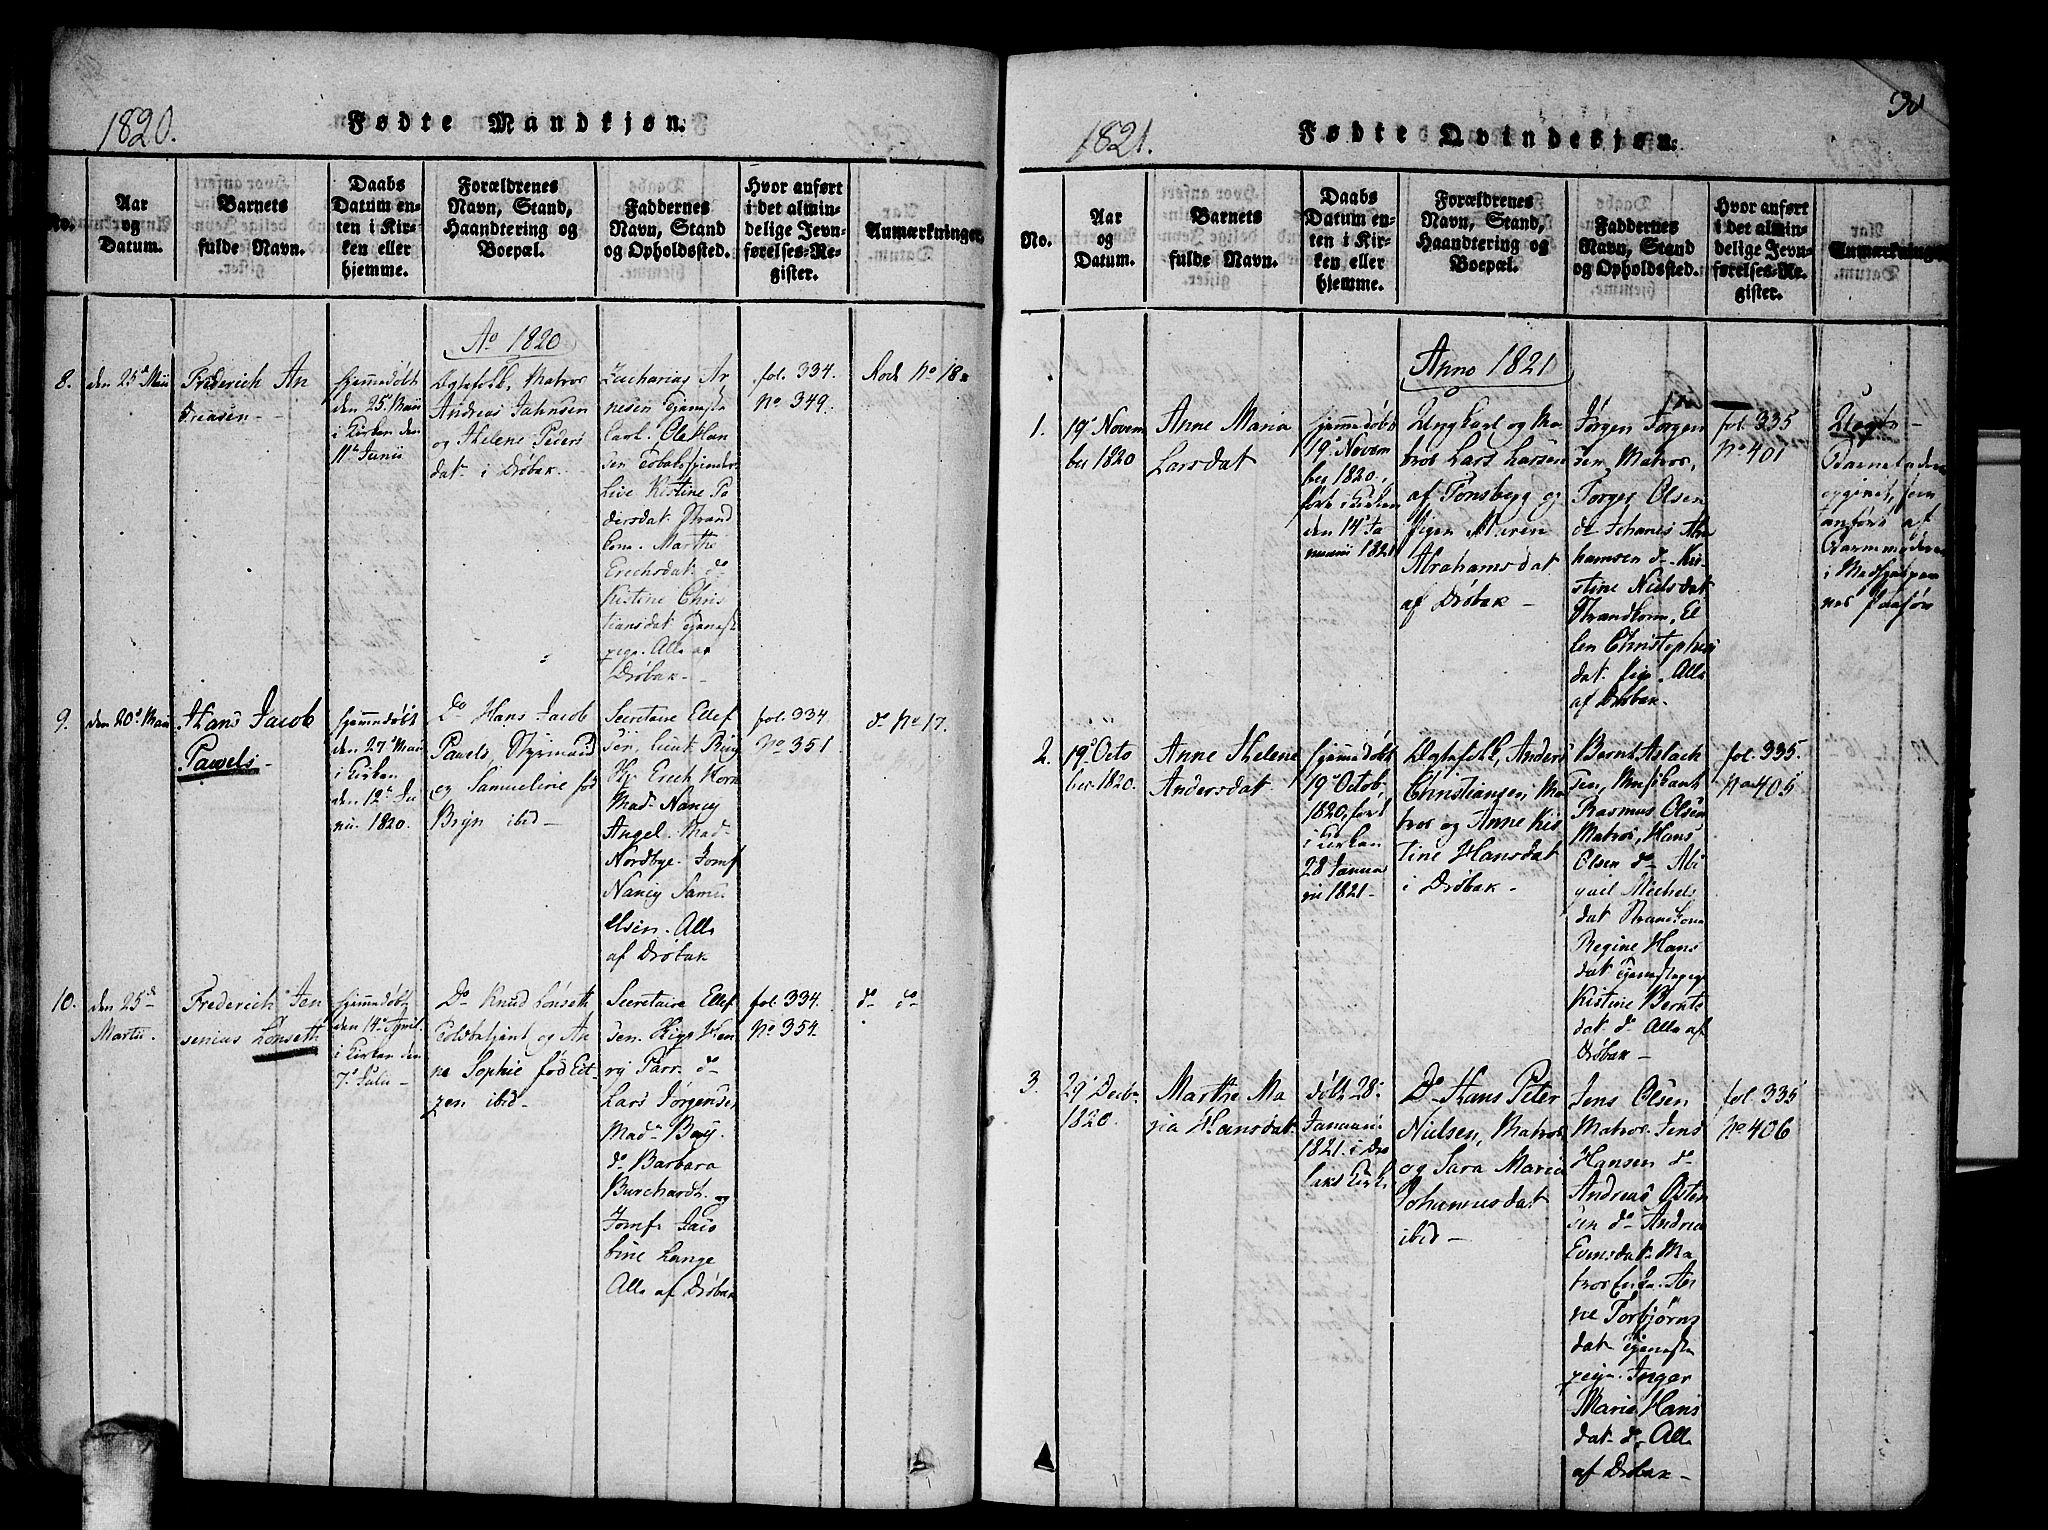 1820.
Fødte Mandkjøn.
No.
Aar
og
Datum.
Barnets
fulde Navn.
Daabs
Datum en-
ten i Kir-
ken eller
hjemme.
Forældrenes
Navn, Stand,
Haandtering og
Boepæl.
Faddernes
Navn, Stand
og Opholdssted.
Hvor anført
i det almin-
delige Jevn-
førelses-Re-
gister.
Anmærkninger.
Ao 1820
8.
den 25de Maii
Frederich An
driasen
hjemmedøbt
den 25. Maii
i Kirken den
11te Junii
Ægtefolk, Matros
Andreas Jahnsen
og Helene Peders
dat. i Drøbak.
Zacharias Ar
nesen Tjeneste
karl. Ole Han
sen
Live Kistine Pe
dersdat. Strand
kone. Marthe
Erichsdat. do
Kistine Chris
tiansdat. Tjeneste
pige. Alle af
Drøbak
fol. 334.
No 349.
Rode No 18.
9.
den 20de Maii
Hans Jacob
Pawels
hjemmedøbt
den 27de Maii
i Kirken
den 12te Ju
nii 1820.
Do Hans Jacob
Pawels, Styrmand
og Samueline fød
Bryn ibid
Secretaire Ellef
sen, Lieut. Bing
Hr. Erich Horn
Mad. Nancy
Angel. Mad.
Nordbye. Jomf
Nancy Samu
elsen. Alle
af Drøbak
fol. 334.
No 351.
do No 17.
10.
den 25de
Martii.
Frederich Jen
senius Lønseth
hjemmedøbt
den 14de April.
i Kirken den
7de Julii
Do Knud Lønseth
Toldbetjent, og An
ne Sophie fød Eit-
zen ibid.
Secretaire Ellef
sen. Hen
ry Parr. do
Lars Jørgensen
Mad. Bing.
do Barbara
Burchardt. og
Jomf. Jaco
bine Lange
Alle af Drøbak
fol. 334.
No 354.
do do
1821.
Fødte Qvindekjøn.
30
No.
Aar
og
Datum.
Barnets
fulde Navn.
Daabs
Datum en-
ten i Kir-
ken eller
hjemme.
Forældrenes
Navn, Stand,
Haandtering og
Boepæl.
Faddernes
Navn, Stand
og Opholdssted.
Hvor anført
i det almin-
delige Jevn-
førelses-Re-
gister.
Anmærkninger
Anno 1821
1.
19de Novem
ber 1820
Anne Maria
Larsdat
hjemmedøbt
19de Novem
ber 1820.
ført i Kirken
den 14de Ja
nuarii 1821
Ungkarl og Ma
tros Lars Larsen
af Tønsberg og
Pigen Maren
Abrahamsdat
af Drøbak
Jørgen Jørgen
sen, Matros,
Torger Olsen
do Johanes Abra
hamsen do Kis
tine Nielsdat
Strandkone, El
len Christophers
dat. pige. Alle
af Drøbak
fol. 335
No 401
Uægte
Barnefaderen
opgivet, som
anført af
Barnmoderen
2.
19de Octo
ber 1820.
Anne Helene
Andersdat
hjemmedøbt
19de Octob.
1820, ført
i Kirken
28 Janua
rii 1821
Ægtefolk, Anders
Christiansen, Ma
tros og Anne Kis
tine Hansdat
i Drøbak
Bernt Aslach
sen, Musikant
Rasmus Olsen
Matros, Hans
Olsen do Abi
gael Michels
dat Strandkone
Regine Hans
dat Tjenestepige
Kistine Bernts
dat do Alle af
Drøbak
fol. 335.
No 405
3.
29de Decbr.
1820.
Marthe Ma
ria Hansdat.
døbt 28de
Januari
1821. i Drø
baks Kirke
Do Hans Peter
Nielsen, Matros
og Sara Maria
Johannesdat
ibid
Jens Olsen
Matros. Jens
Hansen do
Andreas Østen
sen do Andrea
Evensdat. Ma
tros Enke. An
ne Torbjørns
dat Tjeneste
pige. Inger
Maria Hans
dat. do Alle
af Drøbak
fol. 335
No 406